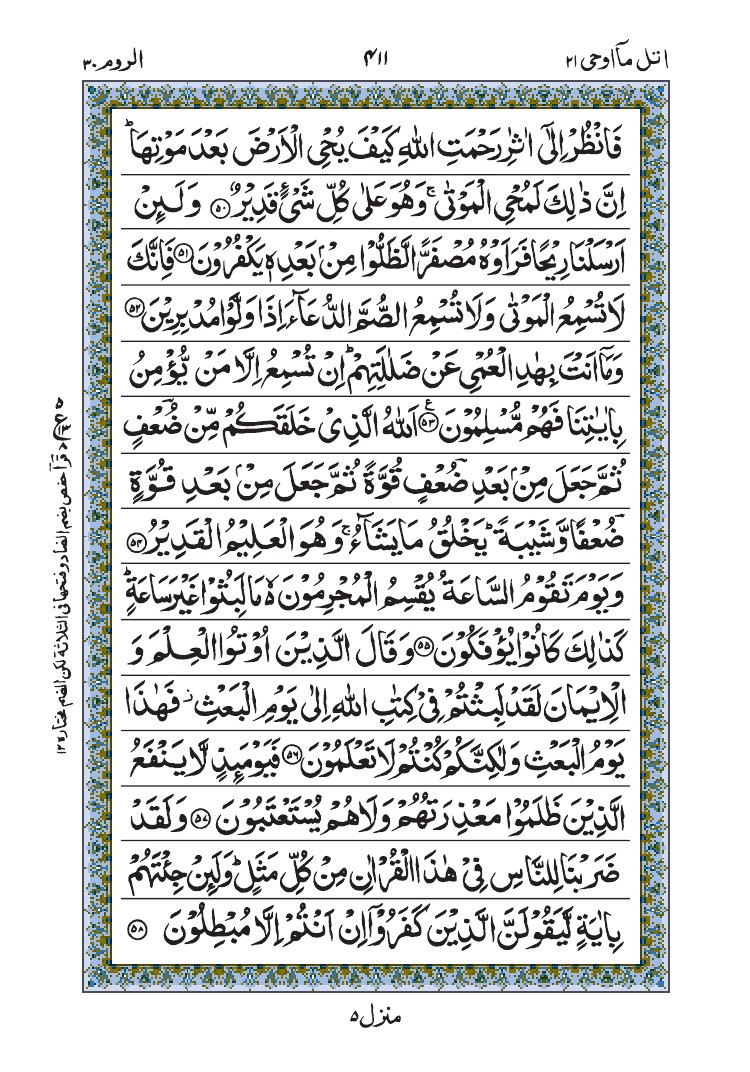 اتل مآاوحی ۲۱
۴۱۱
الروم ۳۰
فَانْظُرْ اِلٰٓى اٰثٰرِ رَحْمَتِ اللّٰهِ كَيْفَ يُحْىِ الْاَرْضَ بَعْدَ مَوْتِهَا ؕ
اِنَّ ذٰلِكَ لَمُحْىِ الْمَوْتٰى ۚ وَهُوَ عَلٰى كُلِّ شَىْءٍ قَدِيْرٌ ﴿۵۰﴾ وَلَىِٕنْ
اَرْسَلْنَا رِيْحًا فَرَاَوْهُ مُصْفَرًّا لَّظَلُّوْا مِنْۢ بَعْدِهٖ يَكْفُرُوْنَ ﴿۵۱﴾ فَاِنَّكَ
لَا تُسْمِعُ الْمَوْتٰى وَلَا تُسْمِعُ الصُّمَّ الدُّعَآءَ اِذَا وَلَّوْا مُدْبِرِيْنَ ﴿۵۲﴾
وَمَآ اَنْتَ بِهٰدِ الْعُمْىِ عَنْ ضَلٰلَتِهِمْ ؕ اِنْ تُسْمِعُ اِلَّا مَنْ يُّؤْمِنُ
بِاٰيٰتِنَا فَهُمْ مُّسْلِمُوْنَ ﴿۵۳﴾ ع اَللّٰهُ الَّذِىْ خَلَقَكُمْ مِّنْ ضُؔعْفٍ
ثُمَّ جَعَلَ مِنْۢ بَعْدِ ضُؔعْفٍ قُوَّةً ثُمَّ جَعَلَ مِنْۢ بَعْدِ قُوَّةٍ
ضُؔعْفًا وَّشَيْبَةً ؕ يَخْلُقُ مَا يَشَآءُ ۚ وَهُوَ الْعَلِيْمُ الْقَدِيْرُ ﴿۵۴﴾
وَيَوْمَ تَقُوْمُ السَّاعَةُ يُقْسِمُ الْمُجْرِمُوْنَ ۙ۬ مَا لَبِثُوْا غَيْرَ سَاعَةٍ ؕ
كَذٰلِكَ كَانُوْا يُؤْفَكُوْنَ ﴿۵۵﴾ وَقَالَ الَّذِيْنَ اُوْتُوا الْعِلْمَ وَ
الْاِيْمَانَ لَقَدْ لَبِثْتُمْ فِىْ كِتٰبِ اللّٰهِ اِلٰى يَوْمِ الْبَعْثِ ؗ فَهٰذَا
يَوْمُ الْبَعْثِ وَلٰكِنَّكُمْ كُنْتُمْ لَا تَعْلَمُوْنَ ﴿۵۶﴾ فَيَوْمَىِٕذٍ لَّا يَنْفَعُ
الَّذِيْنَ ظَلَمُوْا مَعْذِرَتُهُمْ وَلَا هُمْ يُسْتَعْتَبُوْنَ ﴿۵۷﴾ وَلَقَدْ
ضَرَبْنَا لِلنَّاسِ فِىْ هٰذَا الْقُرْاٰنِ مِنْ كُلِّ مَثَلٍ ؕ وَلَىِٕنْ جِئْتَهُمْ
بِاٰيَةٍ لَّيَقُوْلَنَّ الَّذِيْنَ كَفَرُوْٓا اِنْ اَنْتُمْ اِلَّا مُبْطِلُوْنَ ﴿۵۸﴾
قرأ حفص بضم الضاد وفتحها فی الثلاثة لکن الضم مختار ۱۲
منزل ۵